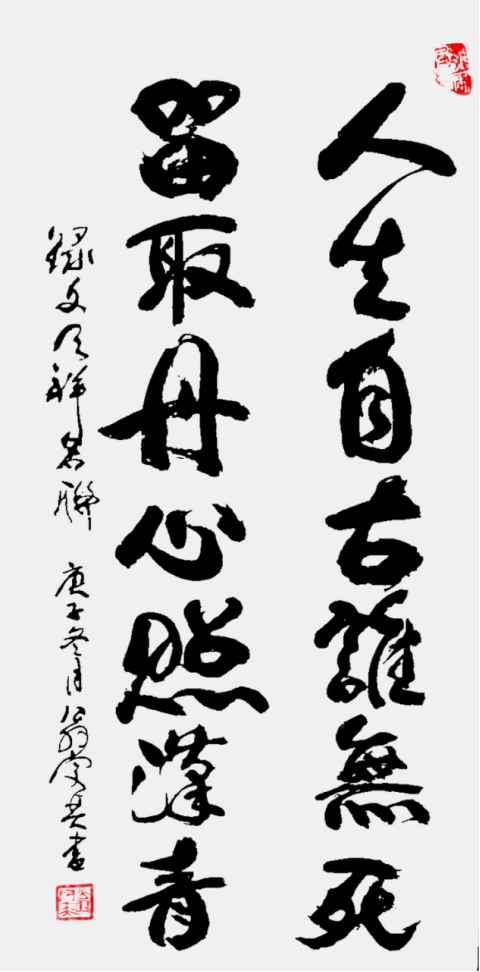 人生自古誰無死
留取丹心照漢青
録文天祥名聯 庚子冬月翁書